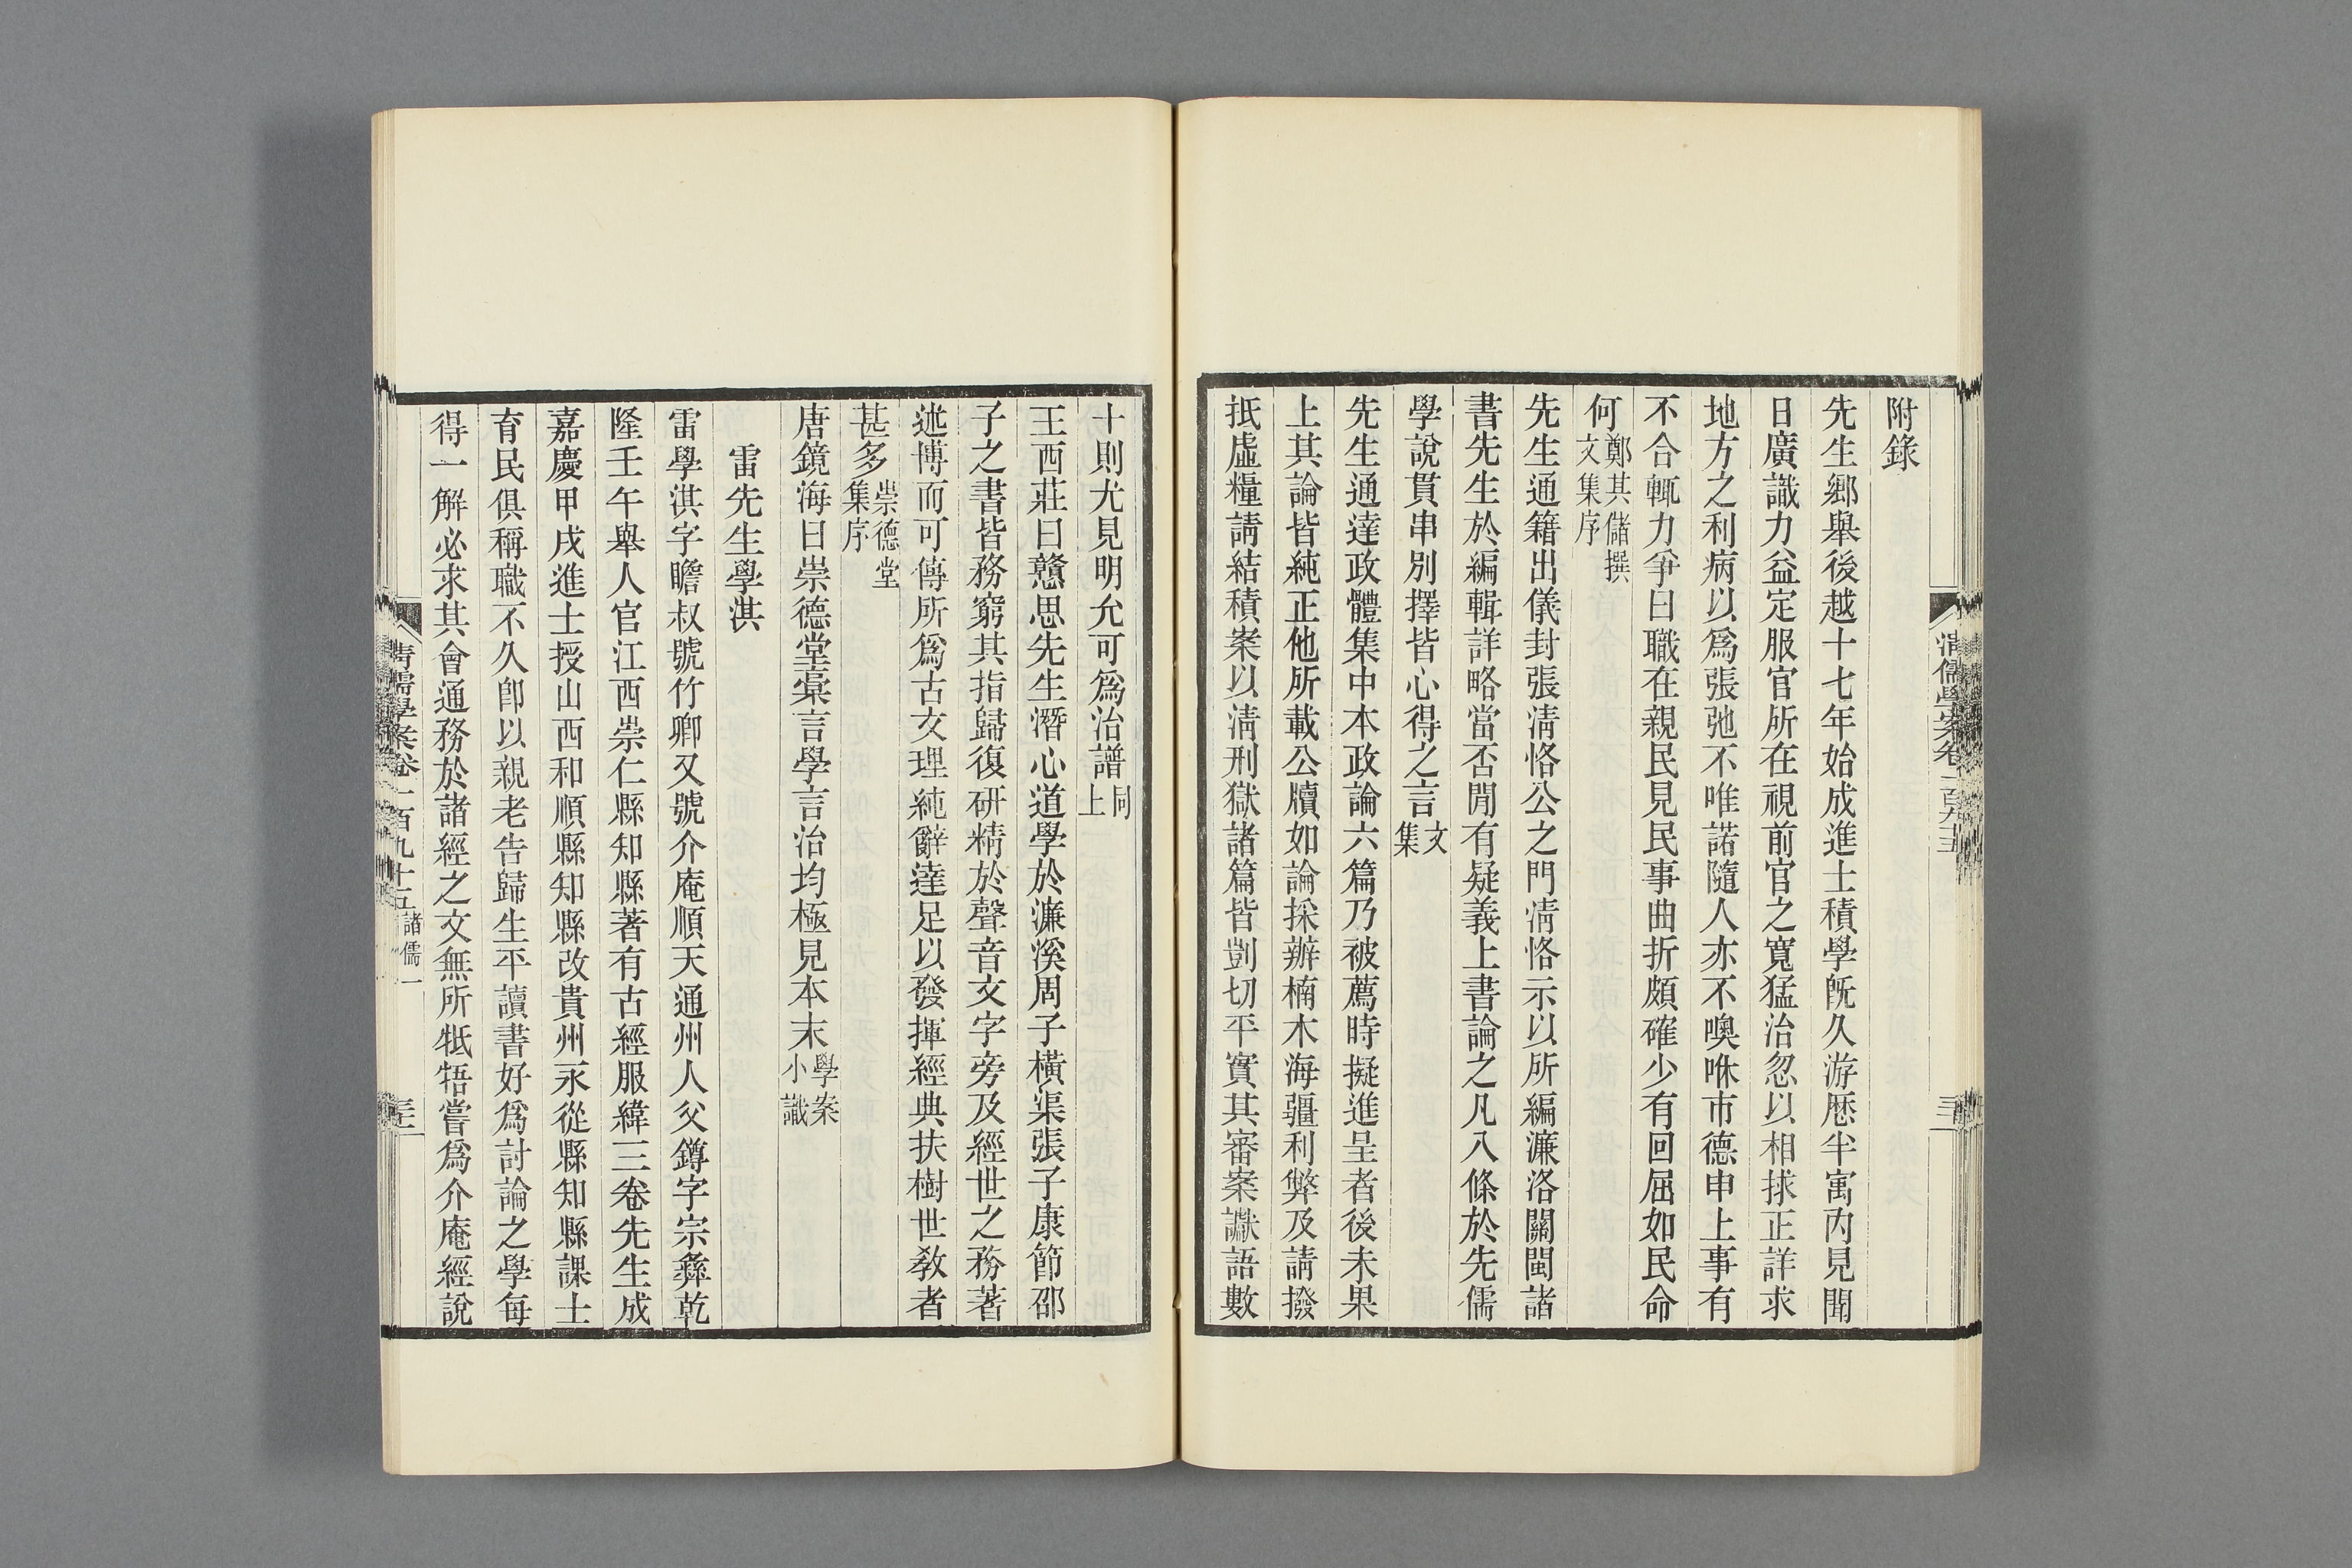 附錄
先生鄉舉後越十七年始成進士積學旣久游歷半寓內見聞
日廣識力益定服官所在視前官之寬猛治忽以相捄正詳求
地方之利病以爲張弛不唯諾隨人亦不噢咻市德申上事有
不合輒力爭曰職在親民見民事曲折頗確少有回屈如民命
何鄭其儲撰文集序
先生通籍出儀封張淸恪公之門淸恪示以所編濂洛關閩諸
書先生於編輯詳略當否閒有疑義上書論之凡八條於先儒
學說貫串別擇皆心得之言文集
先生通達政體集中本政論六篇乃被薦時擬進呈者後未果
上其論皆純正他所載公牘如論採辦楠木海疆利弊及請撥
抵虛糧請結積案以淸刑獄諸篇皆剴切平實其審案讞語數
十則尤見明允可爲治譜同上
王西莊曰戇思先生潛心道學於濂溪周子橫渠張子康節邵
子之書皆務窮其指歸復研精於聲音文字旁及經世之務著
述博而可傳所爲古文理純辭達足以發揮經典扶樹世敎者
甚多崇德堂集序
唐鏡海曰崇德堂槀言學言治均極見本末學案小識
雷先生學淇
雷學淇字瞻叔號竹卿又號介庵順天通州人父鐏字宗彝乾
隆壬午舉人官江西崇仁縣知縣著有古經服緯三卷先生成
嘉慶甲戌進士授山西和順縣知縣改貴州永從縣知縣課士
育民俱稱職不久卽以親老告歸生平讀書好爲討論之學每
得一解必求其會通務於諸經之文無所牴牾嘗爲介庵經說
淸儒學案卷一百九十五諸儒一